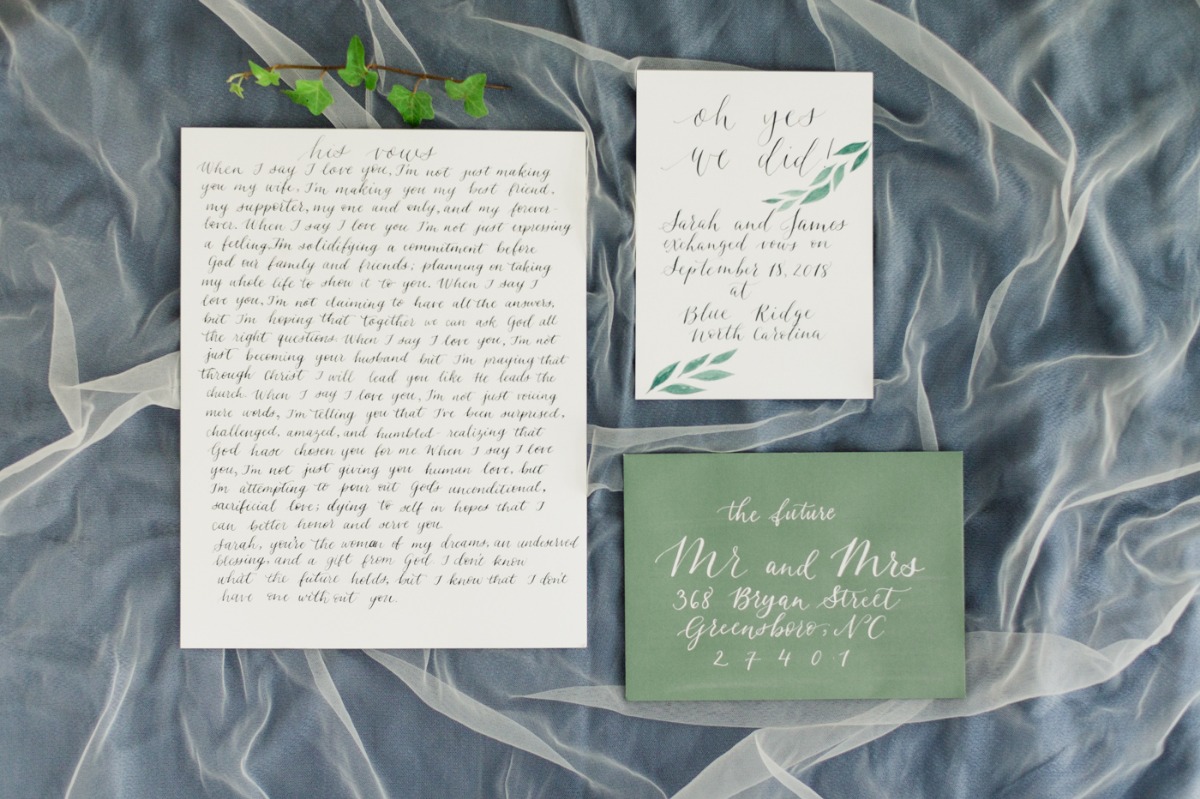 his vows
When I say I love you, I'm not just making
you my wife, I'm making you my best friend,
my supporter, my one and only, and my forever-
lover. When I say I love you I'm not just expressing
a feeling. I'm solidifying a commitment before
God our family and friends; planning on taking
my whole life to show it to you. When I say I
love you, I'm not claiming to have all the answers,
but I'm hoping that together we can ask God all
the right questions. When I say I love you, I'm not
just becoming your husband but I'm praying that
through Christ I will lead you like He leads the
church. When I say I love you, I'm not just voicing
mere words, I'm telling you that I've been surprised,
challenged, amazed, and humbled- realizing that
God hase chosen you for me When I say I love
you, I'm not just giving you human love, but
I'm attempting to pour out Gods unconditional,
sacrificial love; dying to self in hopes that I
can better honor and serve you
Sarah, you're the woman of my dreams, an undeserved
blessing, and a gift from God I don't know
what the future holds, but I know that I don't
have one with out you.
oh yes
we did!
Sarah and James
exhanged vows on
September 18, 2018
at
Blue Ridge
North Carolina
the future
Mr and Mrs
368 Bryan Street
Greensboro, NC
27401